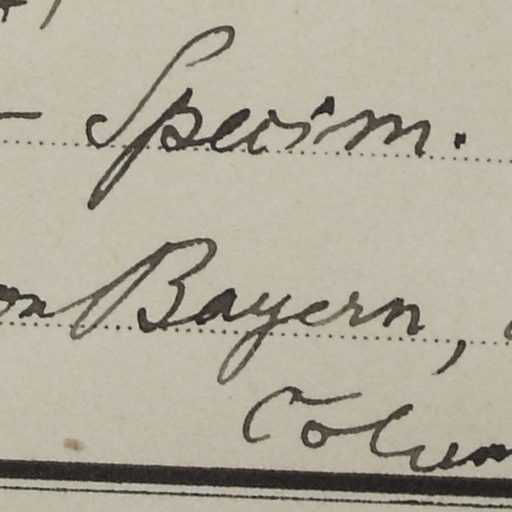 - Specim.
on Bayern,
Colum